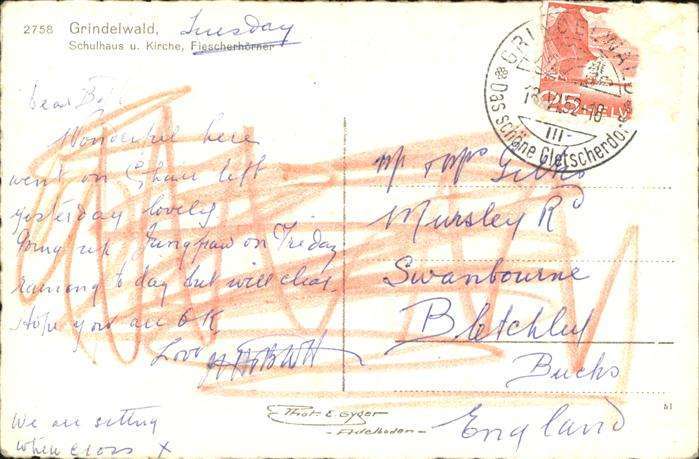 2758 Grindelwald, Tuesday
Schulhaus u. Kirche, Fiescherhörner
GRINDELWALD
Das schöne Gletscherdorf
52-18
III-
HELVETIA
Dear
Wonderful here
went on Chair lift
yesterday lovely
Going up Jungfrau on Friday
raining to day but will clear.
Hope you are O K
Love
We are sitting
where cross X
Mr & Mrs
Mursley Rd
Swanbourne
Bletchley
Bucks
England
Phot. E. Gyger
- Adelboden -
61